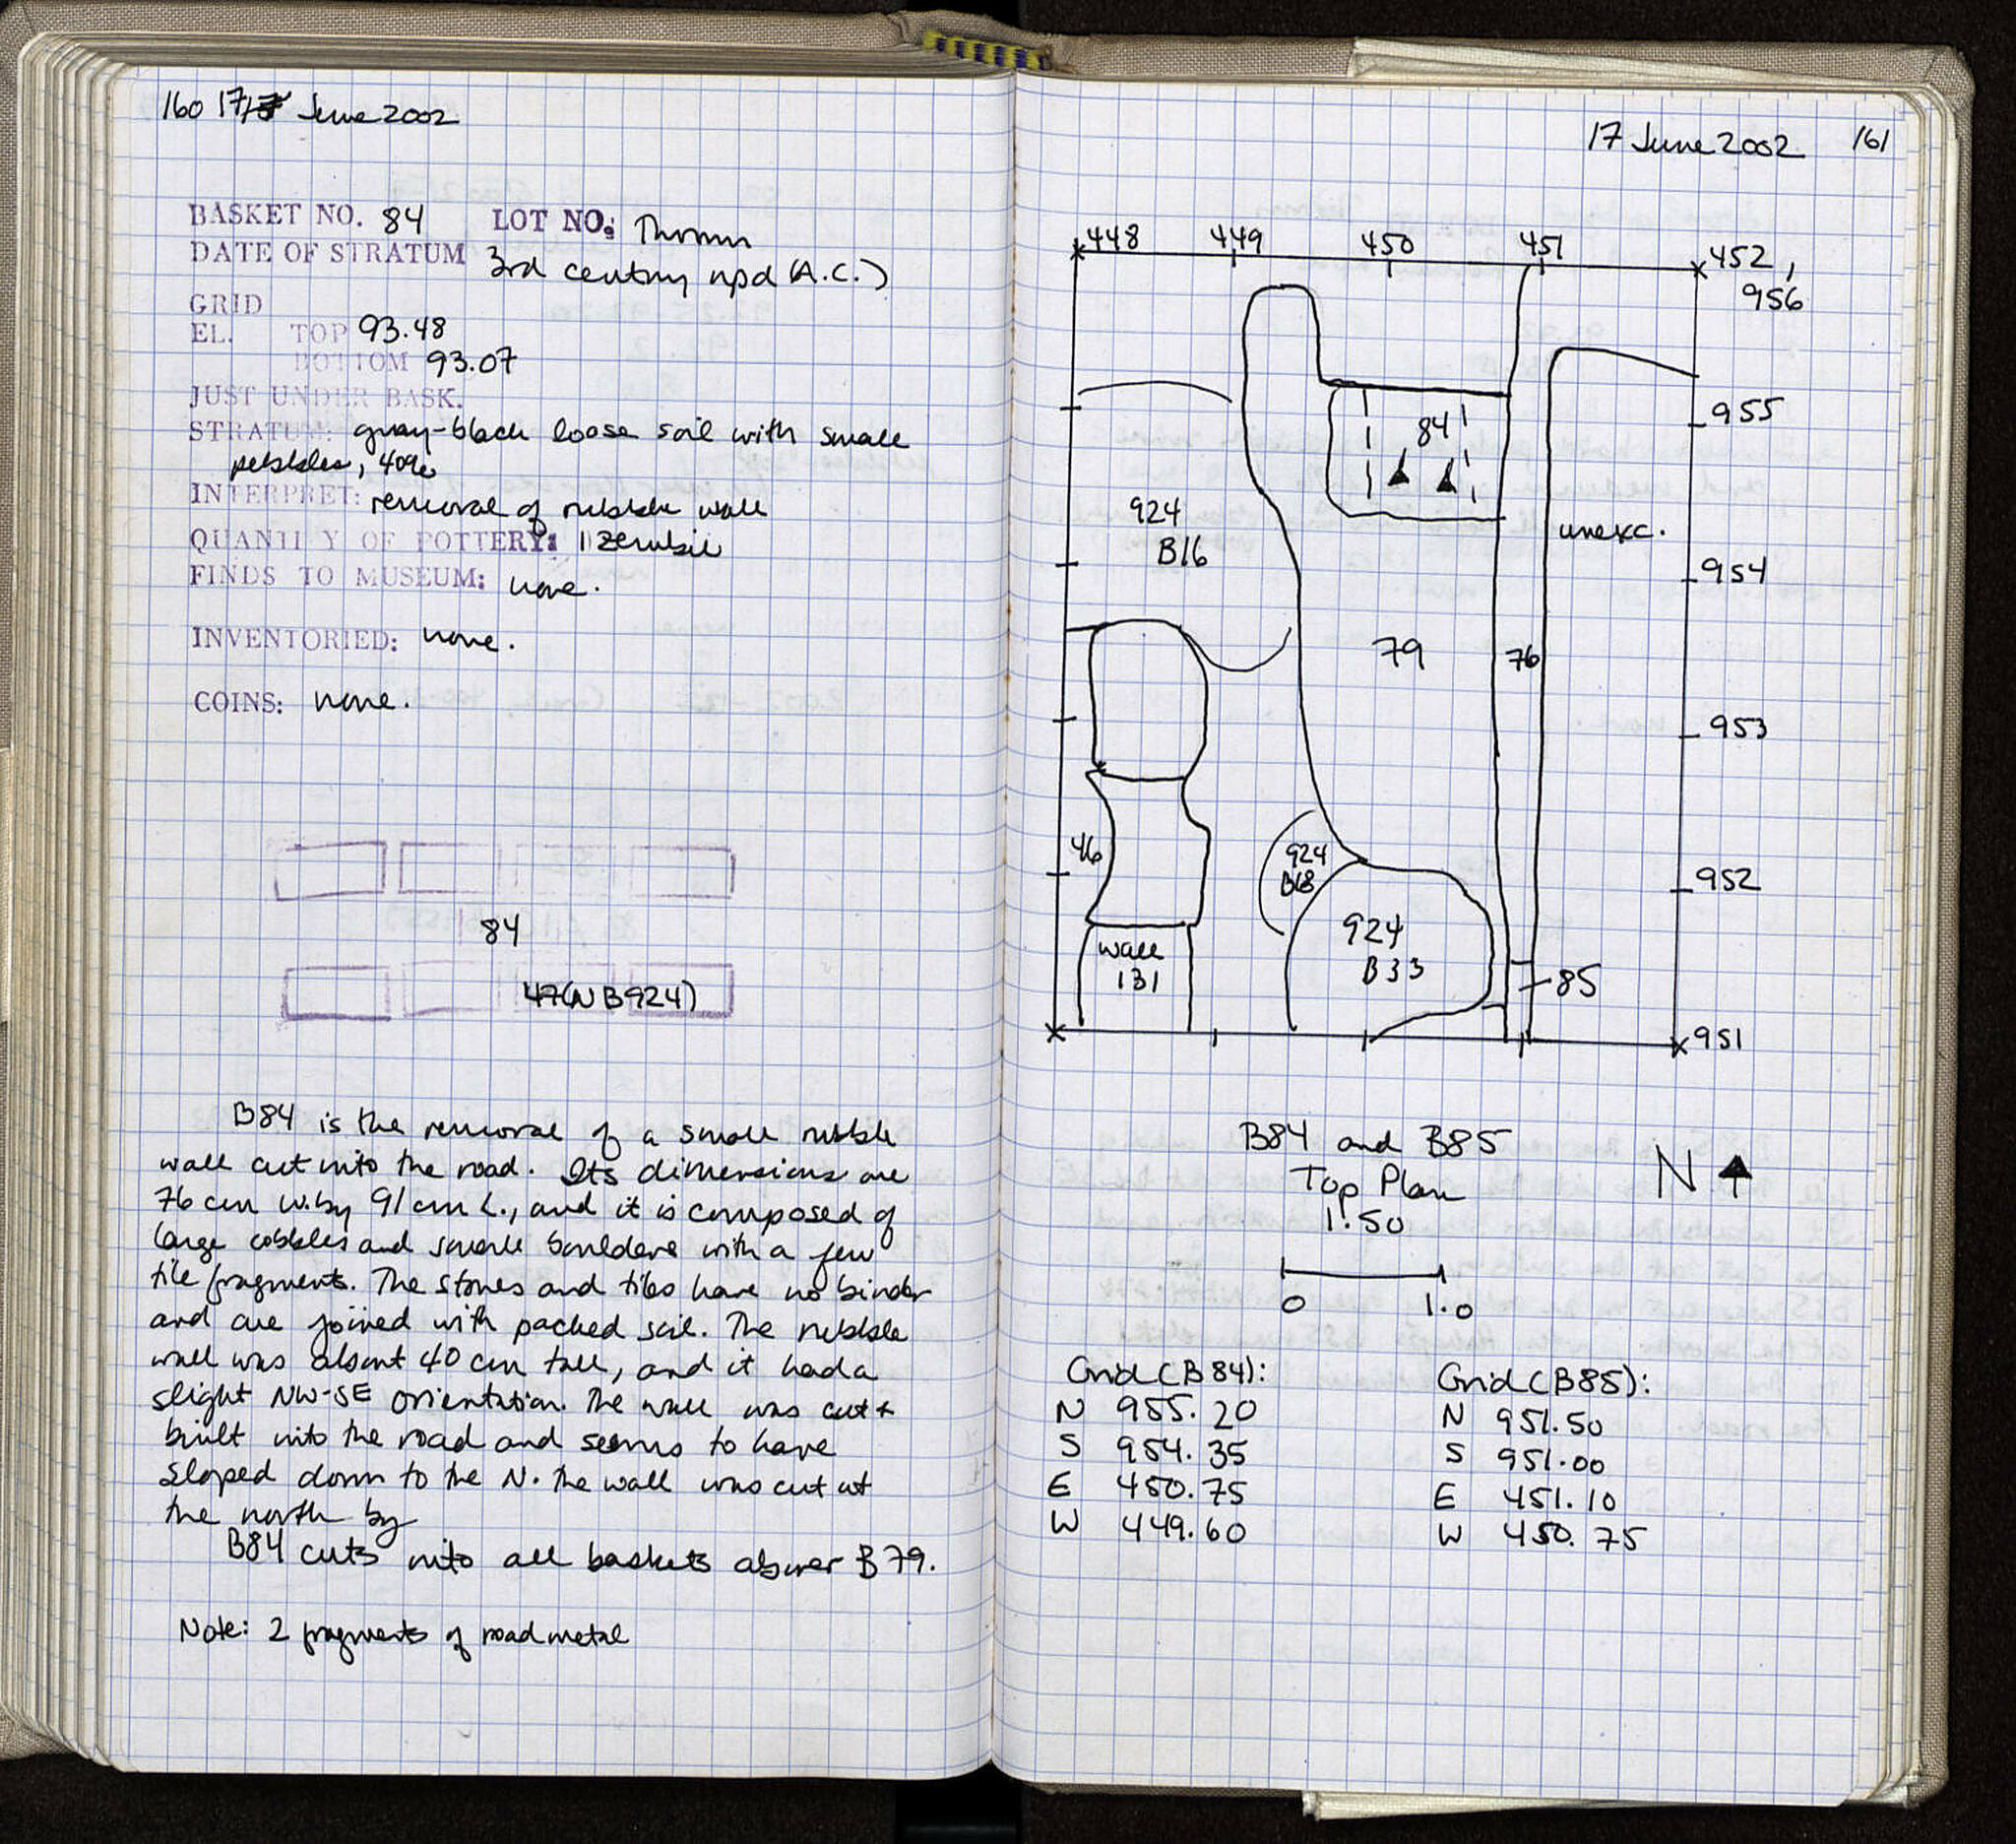 160 17 June 2002
BASKET NO. 84 LOT NO: Thrown
DATE OF STRATUM 3rd century npd (A.C.)
GRID
EL. TOP 93.48
BOTTOM 93.07
JUST UNDER BASK.
STRATUM: gray-black loose soil with small
pebbles, 40%
INTERPRET: removal of rubble wall
QUANTITY OF POTTERY: 1 zembili
FINDS TO MUSEUM: none.
INVENTORIED: none.
COINS: none.
84
47(NB924)
B84 is the removal of a small rubble
wall cut into the road. Its dimensions are
76 cm W. by 91 cm L., and it is composed of
large cobbles and small boulders with a few
tile fragments. The stones and tiles have no binder
and are joined with packed soil. The rubble
wall was about 40 cm tall, and it had a
slight NW-SE orientation. The wall was cut +
built into the road and seems to have
sloped down to the N. The wall was cut at
the north by
B84 cuts into all baskets above B79.
Note: 2 fragments of road metal
17 June 2002 161
448 449 450 451 452,
956
955
84
924
B16
unexc.
954
79
76
953
46
924
B68
952
924
B33
wall
131
85
951
B84 and B85
Top Plan
1:50
N
0 1.0
Grid (B84):
N 955.20
S 954.35
E 450.75
W 449.60
Grid (B85):
N 951.50
S 951.00
E 451.10
W 450.75